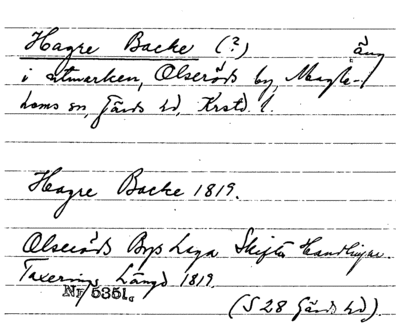 Hagre Backe (?) äng
i utmarken, Olseröds by, Magle-
hems sn, Gärds hd, Krstd. l.
Hagre Backe 1819.
Olseröds Bys Laga Skiftes Handlingar.
Taxerings Längd 1819.
NF/5351.
(S 28 Gärds hd).